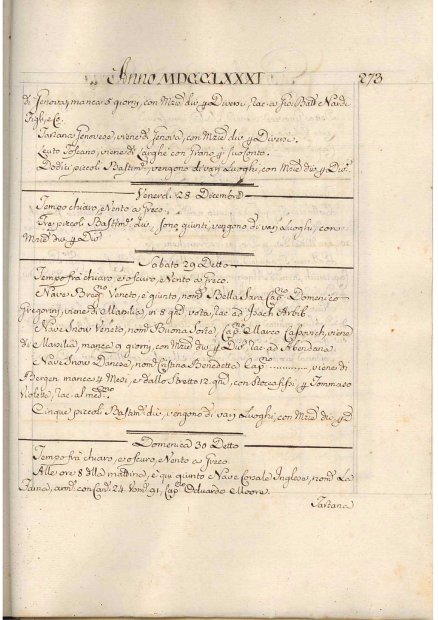 Anno MDCCLXXXI 273
di Genova, manca 8 giorni, con Mrzie div. p Diversi, rac. a Gio: Batt. Nardi
Figli, e Co.
Tartana Genovese, viene di Genova, con Mrzie div. p Diversi.
Leuto Toscano, viene di Longhe con Grano p suo Conto.
Dodici piccoli Bastimti, vengono di varj Luoghi, con Mrzie div. p Divi.
Venerdi 28 Decembre
Tempo chiaro, Vento a Greco.
Tre piccoli Bastimti div. sono giunti, vengono di varj Luoghi, con
Mrzie div. p Divi.
Sabato 29 Detto
Tempo frà chiaro, e oscuro, Vento a Greco.
Nave Bregno Veneto, è giunto, nomo Bella Sara Capno Domenico
Gregorini, viene di Marsilia, in 8 gni vota, rac. ad Isach Arbib
Nave Snow Veneto, nomo Buona Sorte Capno Marco Cassovich, viene
di Marsilia, manca 9 giorni, con Mrzie div. p Divi rac. ad Abendana.
Nave Snow Danese, nomo Cristiana Benedetta Capno ............, viene di
Bergen manca 4 Mesi, e dallo Stretto 12 gni, con Stoccafissi, p Tommaso
Violette, rac. al medmo.
Cinque piccoli Bastimti div. vengono di varj Luoghi, con Mrzie div. p D
Domenica 30 Detto
Tempo frà chiaro, e oscuro, Vento a Greco.
Alle ore 8 dlla mattina, è qui giunto Nave Corsale Inglese, nomo La
Fama, armo con Cani 24 Vomi 91, Capno Eduardo Moore.
Tartana